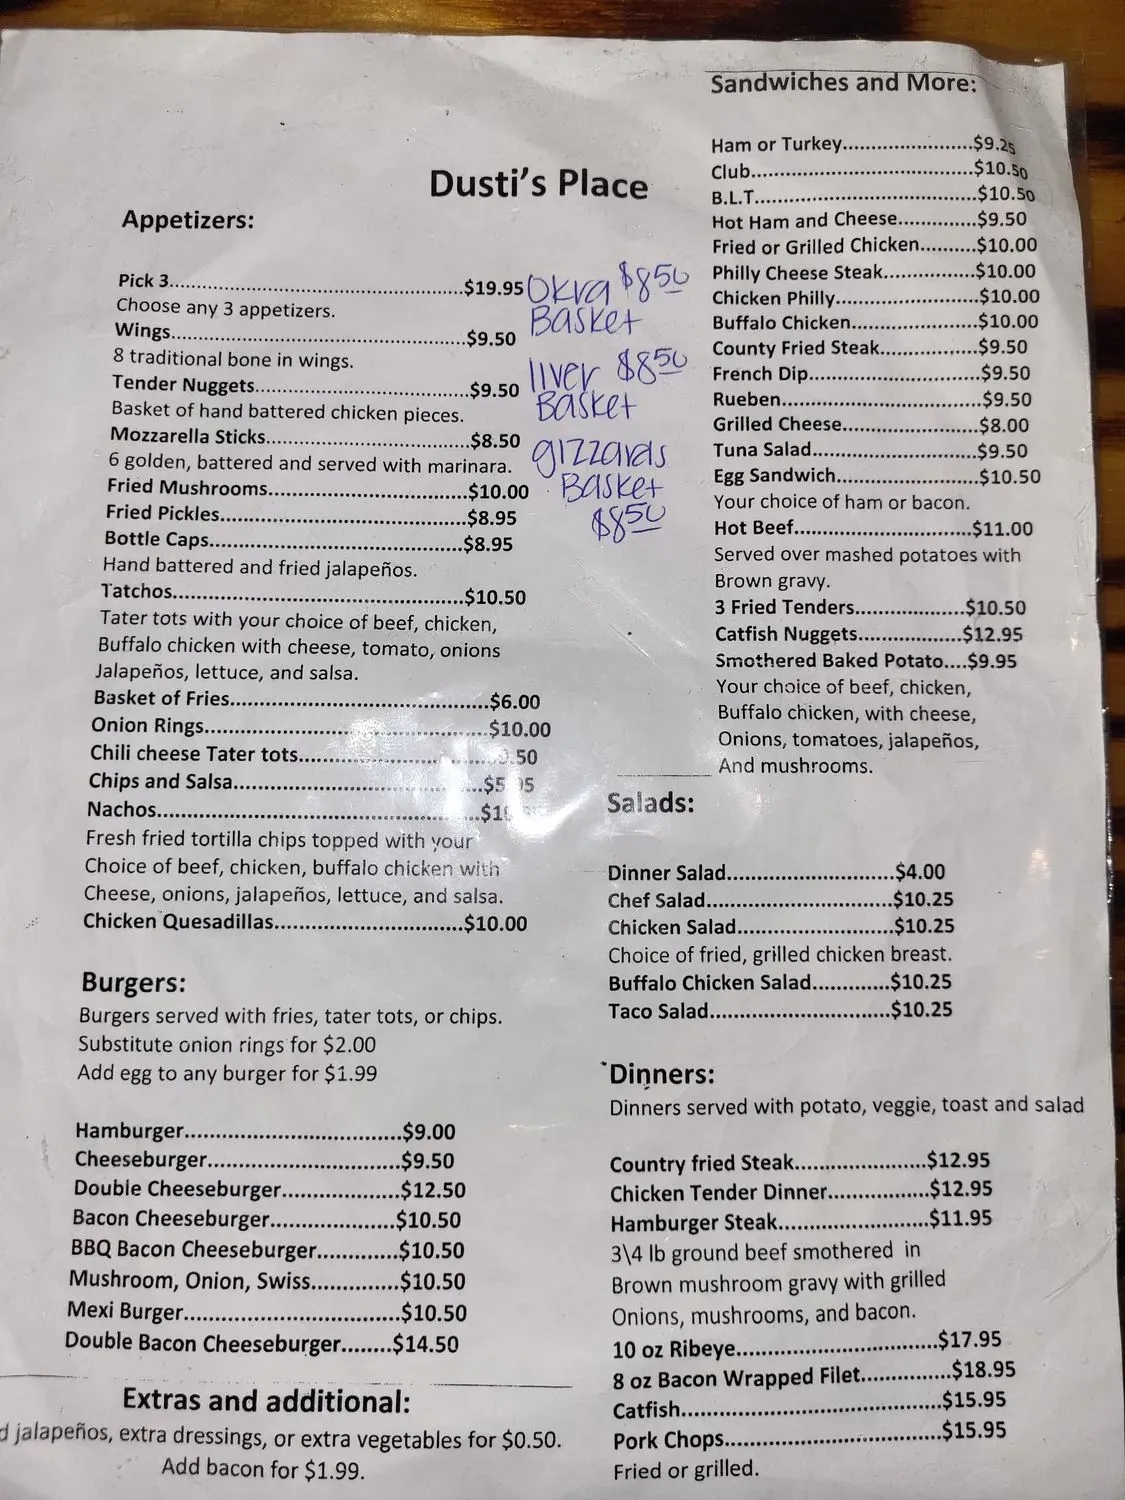 Dusti's Place
Appetizers:
Pick 3..........$19.95
Choose any 3 appetizers.
Wings..........$9.50
8 traditional bone in wings.
Tender Nuggets..........$9.50
Basket of hand battered chicken pieces.
Mozzarella Sticks..........$8.50
6 golden, battered and served with marinara.
Fried Mushrooms..........$10.00
Fried Pickles..........$8.95
Bottle Caps..........$8.95
Hand battered and fried jalapeños.
Tatchos..........$10.50
Tater tots with your choice of beef, chicken,
Buffalo chicken with cheese, tomato, onions
Jalapeños, lettuce, and salsa.
Basket of Fries..........$6.00
Onion Rings..........$10.00
Chili cheese Tater tots..........
Chips and Salsa..........
Nachos..........
Fresh fried tortilla chips topped with your
Choice of beef, chicken, buffalo chicken with
Cheese, onions, jalapeños, lettuce, and salsa.
Chicken Quesadillas..........$10.00
Okra $8.50
Basket
liver $8.50
Basket
gizzards
Basket
$8.50
Burgers:
Burgers served with fries, tater tots, or chips.
Substitute onion rings for $2.00
Add egg to any burger for $1.99
Hamburger..........$9.00
Cheeseburger..........$9.50
Double Cheeseburger..........$12.50
Bacon Cheeseburger..........$10.50
BBQ Bacon Cheeseburger..........$10.50
Mushroom, Onion, Swiss..........$10.50
Mexi Burger..........$10.50
Double Bacon Cheeseburger........$14.50
Extras and additional:
jalapeños, extra dressings, or extra vegetables for $0.50.
Add bacon for $1.99.
Sandwiches and More:
Ham or Turkey..........$9.25
Club..........$10.50
B.L.T..........$10.50
Hot Ham and Cheese..........$9.50
Fried or Grilled Chicken..........$10.00
Philly Cheese Steak..........$10.00
Chicken Philly..........$10.00
Buffalo Chicken..........$10.00
County Fried Steak..........$9.50
French Dip..........$9.50
Rueben..........$9.50
Grilled Cheese..........$8.00
Tuna Salad..........$9.50
Egg Sandwich..........$10.50
Your choice of ham or bacon.
Hot Beef..........$11.00
Served over mashed potatoes with
Brown gravy.
3 Fried Tenders..........$10.50
Catfish Nuggets..........$12.95
Smothered Baked Potato....$9.95
Your choice of beef, chicken,
Buffalo chicken, with cheese,
Onions, tomatoes, jalapeños,
And mushrooms.
Salads:
Dinner Salad..........$4.00
Chef Salad..........$10.25
Chicken Salad..........$10.25
Choice of fried, grilled chicken breast.
Buffalo Chicken Salad..........$10.25
Taco Salad..........$10.25
Dinners:
Dinners served with potato, veggie, toast and salad
Country fried Steak..........$12.95
Chicken Tender Dinner..........$12.95
Hamburger Steak..........$11.95
3\4 lb ground beef smothered in
Brown mushroom gravy with grilled
Onions, mushrooms, and bacon.
10 oz Ribeye..........$17.95
8 oz Bacon Wrapped Filet..........$18.95
Catfish..........$15.95
Pork Chops..........$15.95
Fried or grilled.